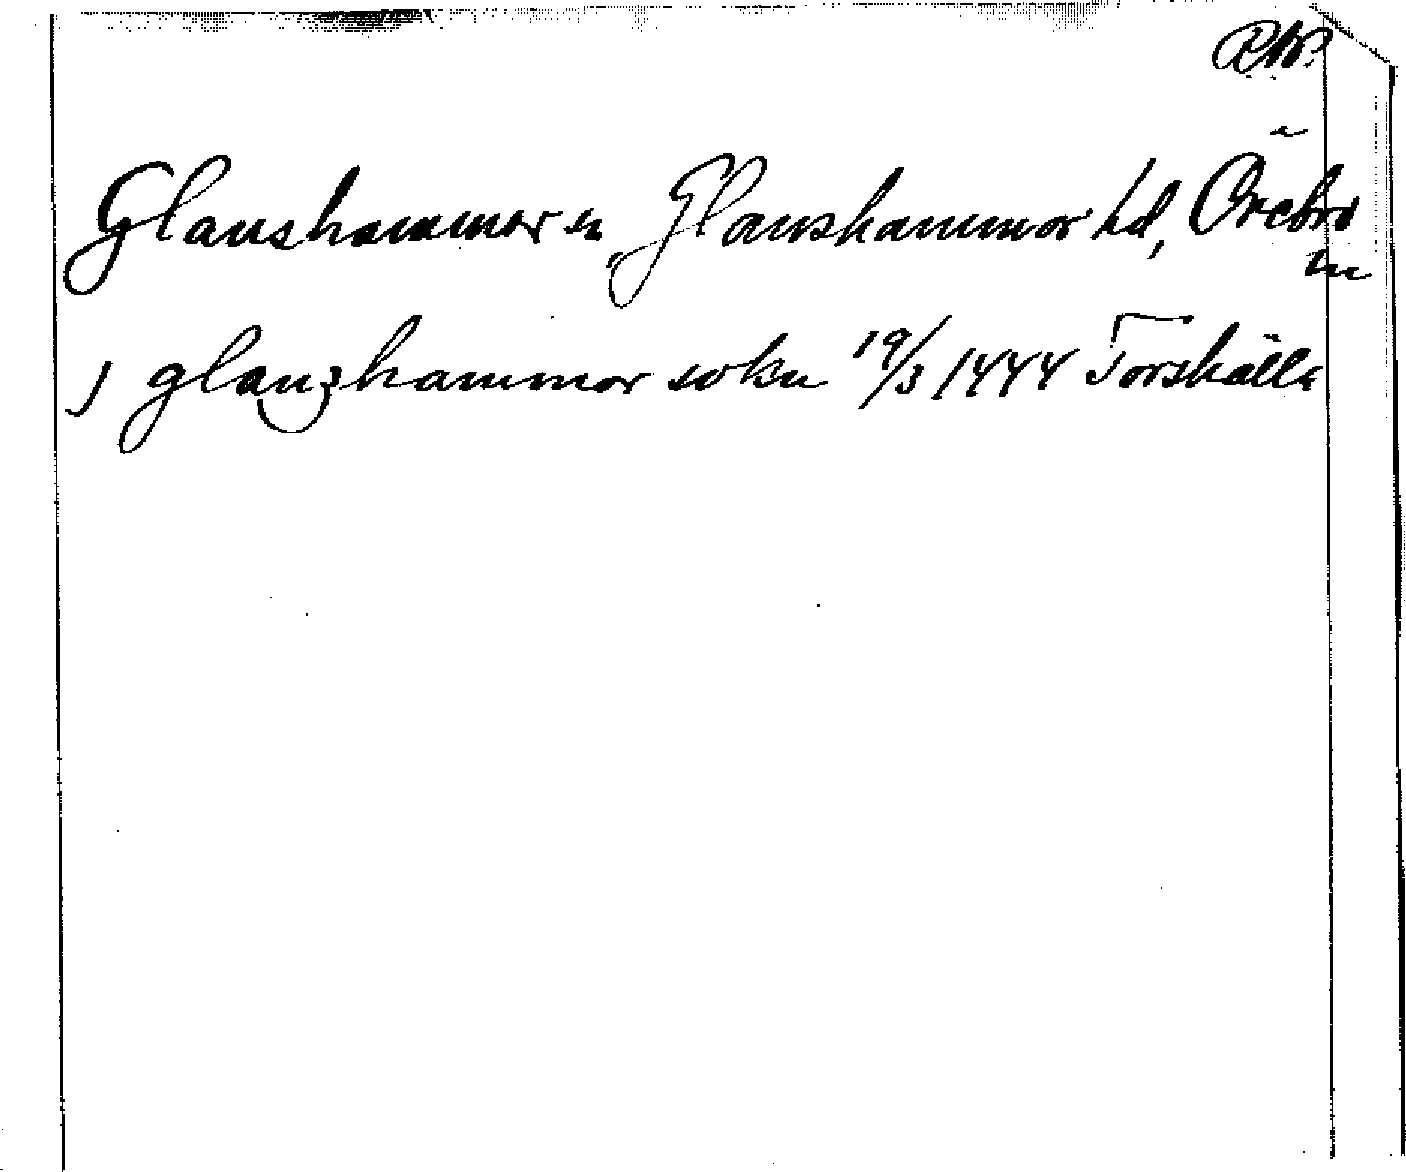 RAP.
Glanshammar sn, Glanshammar hd, Örebro
län
j glanzhammor sokn 19/3 1444 Torshälla